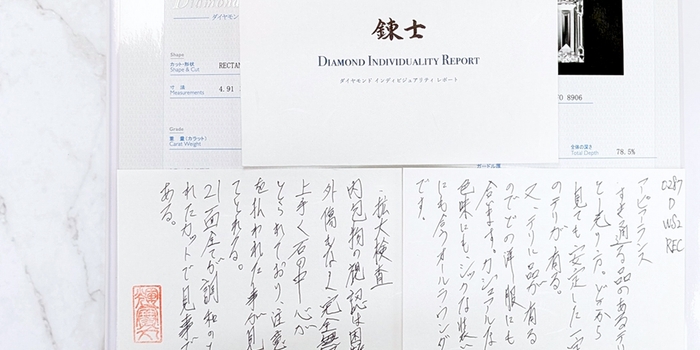 Diamond
ダイヤモンド
錬士
DIAMOND INDIVIDUALITY REPORT
ダイヤモンド インディビジュアリティ レポート
Shape
カット・形状
Shape & Cut
RECTAN
寸 法
Measurements
4.91
Grade
重 量 (カラット)
Carat Weight
8906
全体の深さ
Total Depth
78.5%
ガードル厚
0287
D
VVS2
REC
アピアランス
すき通る品のあるテリ
見ても安定した一定
のテリが有る。
又、テリに品が有る
のでどの洋服にも
合います。カジュアルな
色味にも、シックな装い
にも合うオールラウンダー
です。
・拡大検査
内包物の視認は困
外傷もなく完全無
上手く石の中心が
とられており、注意
を払われた事が見
てとれる。
21面全てが調和のと
れたカットで見事で
ある。